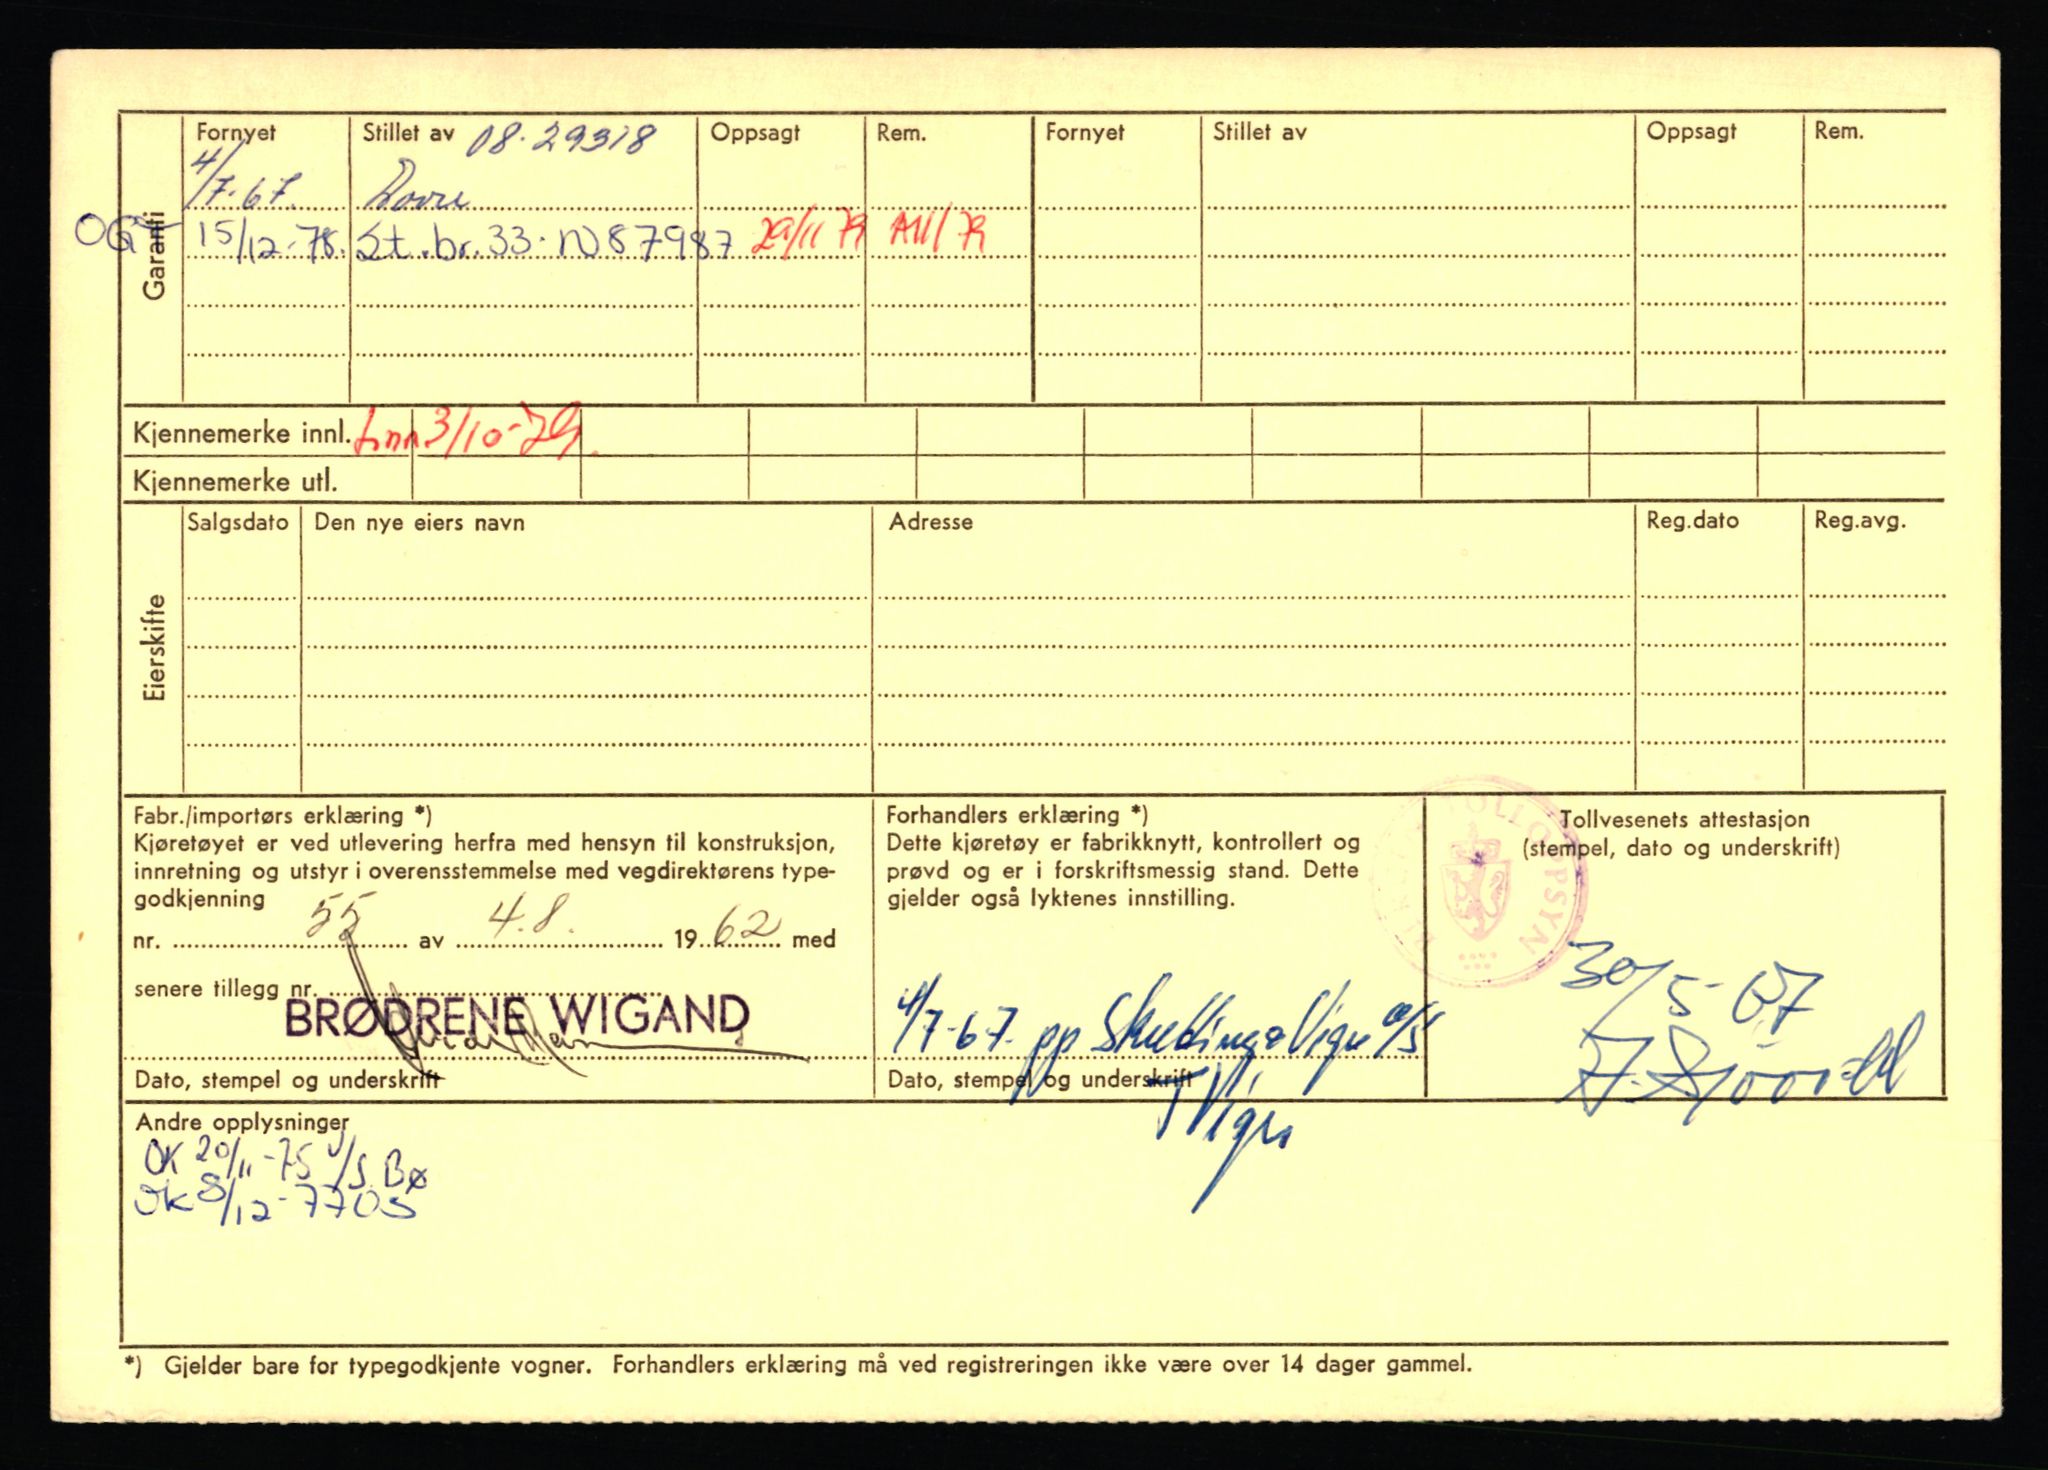 Garanti
Fornyet Stillet av 08.29318 Oppsagt Rem. Fornyet Stillet av Oppsagt Rem.
4/7-67. Dovre
OG 15/12-78. St.br.33. N87987 29/11 79
Kjennemerke innl. Inn 3/10-79.
Kjennemerke utl.
Eierskifte
Salgsdato Den nye eiers navn Adresse Reg.dato Reg.avg.
Fabr./importørs erklæring *)
Kjøretøyet er ved utlevering herfra med hensyn til konstruksjon,
innretning og utstyr i overensstemmelse med vegdirektørens type-
godkjenning
nr. 55 av 4.8. 1962 med
senere tillegg nr.
BRØDRENE WIGAND
Dato, stempel og underskrift
Forhandlers erklæring *)
Dette kjøretøy er fabrikknytt, kontrollert og
prøvd og er i forskriftsmessig stand. Dette
gjelder også lyktenes innstilling.
4/7-67. pp Skudding & Vigre a/s
Dato, stempel og underskrift
T Vigre
Tollvesenets attestasjon
(stempel, dato og underskrift)
TOLLOPPSYN
30/5-67
Andre opplysninger
OK 20/11-75 U/S. Bø
OK 8/12-77 OS
*) Gjelder bare for typegodkjente vogner. Forhandlers erklæring må ved registreringen ikke være over 14 dager gammel.